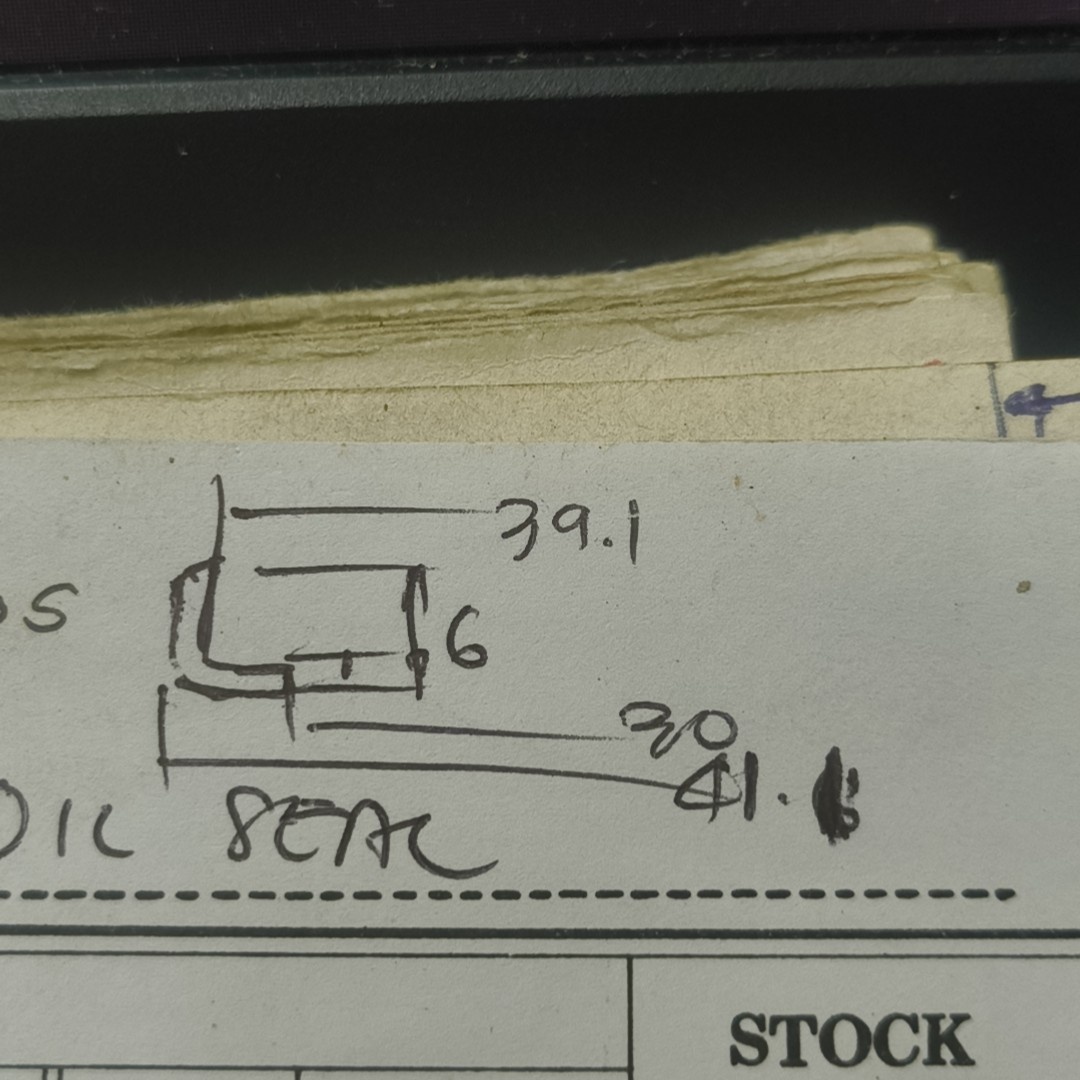 39.1
os
6
30
41.
OIL SEAL
STOCK